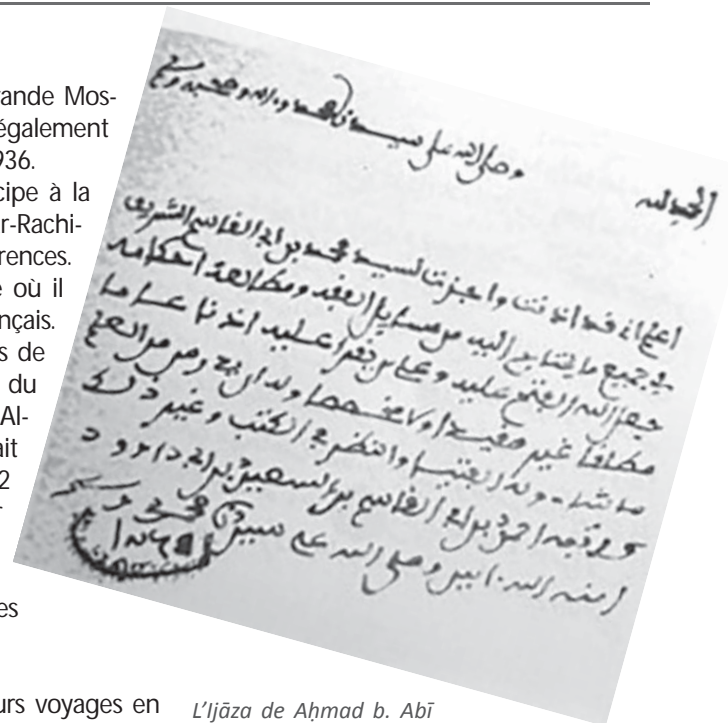 rande Mos-
également
936.
cipe à la
r-Rachi-
rences.
e où il
nçais.
s de
du
Al-
ait
2
es
urs voyages en
الحمد لله وصلى الله على سيدنا محمد وءاله وصحبه
اعلم اني قد اذنت واجزت لسيد محمد بن ابي القاسم الشريف
في جميع ما يحتاج اليه من مسايل الفقه ومطالعة احكامه
جعل الله الفتح عليه وعلى من يقرأ عليه اذنا عاما
مطلقا غير مقيد ولا مخصص وله ان
ما شاء وله الفتيا والنظر في الكتب وغير ذلك
احمد بن ابي القاسم بن السعيد بن ابي داوود
امنه الله ءامين وصلى الله على سيدنا محمد
L'Ijāza de Aḥmad b. Abī